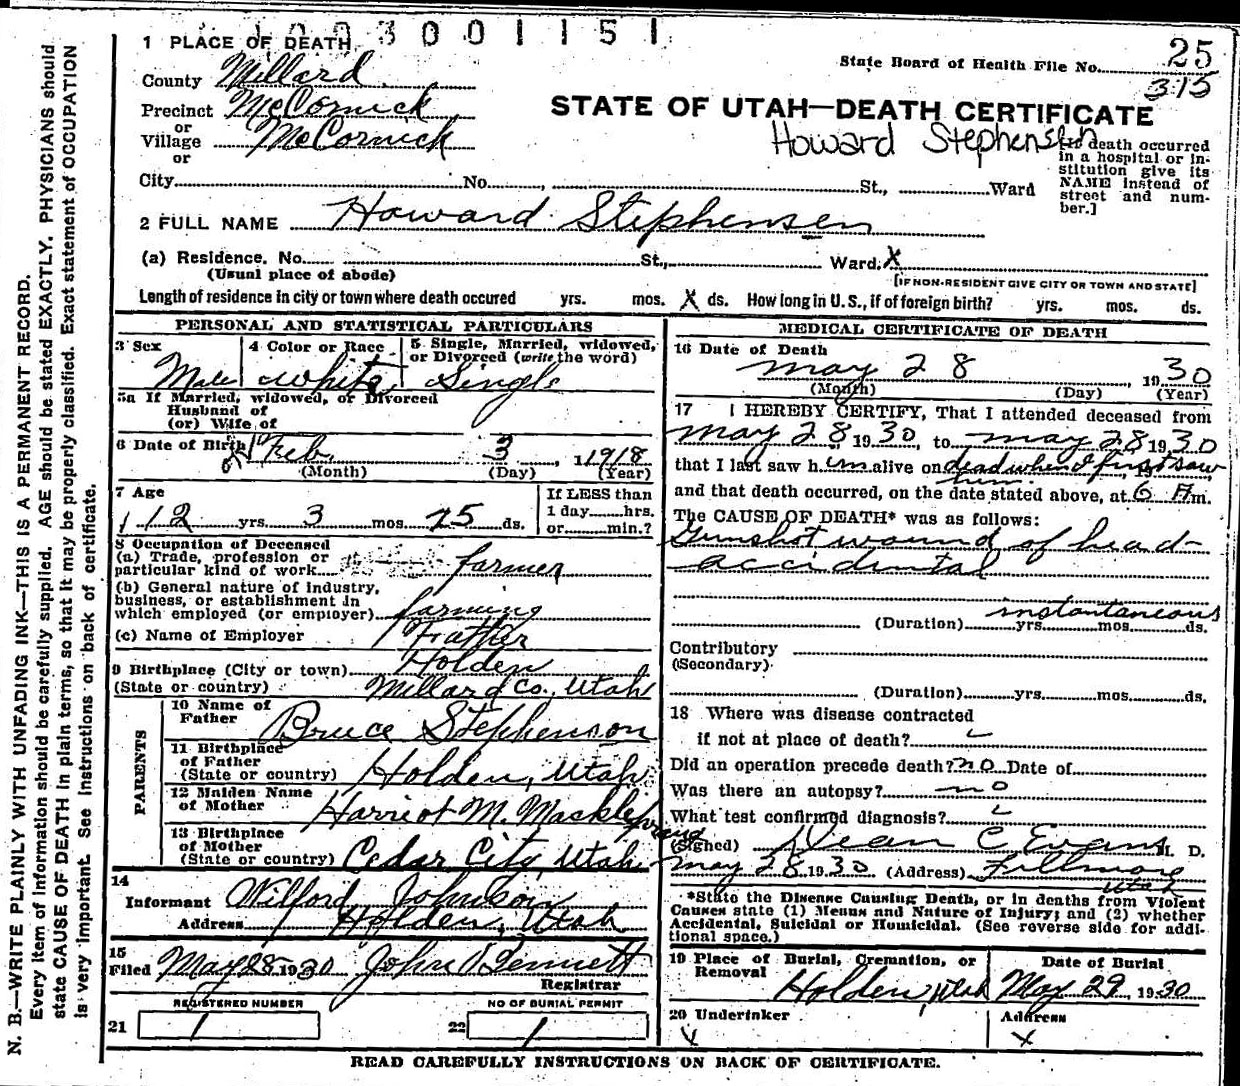 1003001151
1 PLACE OF DEATH
State Board of Health File No. 25
315
County Millard
Precinct McCornick
or
Village McCornick
or
STATE OF UTAH—DEATH CERTIFICATE
Howard Stephensen
death occurred
in a hospital or in-
stitution give its
NAME instead of
street and num-
ber.]
City No. St., Ward
2 FULL NAME Howard Stephensen
(a) Residence. No. St., Ward. X
(Usual place of abode)
[IF NON-RESIDENT GIVE CITY OR TOWN AND STATE]
Length of residence in city or town where death occured yrs. mos. X ds. How long in U.S., if of foreign birth? yrs. mos. ds.
PERSONAL AND STATISTICAL PARTICULARS
3 Sex
Male
4 Color or Race
White
5 Single, Married, widowed,
or Divorced (write the word)
Single
5a If Married, widowed, or Divorced
Husband of
(or) Wife of
6 Date of Birth Feb 3, 1918
(Month) (Day) (Year)
7 Age
12 yrs. 3 mos. 25 ds.
If LESS than
1 day hrs.
or min.?
8 Occupation of Deceased
(a) Trade, profession or
particular kind of work farmer
(b) General nature of industry,
business, or establishment in
which employed (or employer) farming
(c) Name of Employer Father
9 Birthplace (City or town) Holden
(State or country) Millard Co., Utah
PARENTS
10 Name of
Father Bruce Stephenson
11 Birthplace
of Father
(State or country) Holden, Utah
12 Maiden Name
of Mother Harriot M. Mackleprang
13 Birthplace
of Mother
(State or country) Cedar City, Utah
14
Informant Wilford Johnson
Address Holden, Utah
15
Filed May 28 1930 John Bennett
Registrar
REGISTERED NUMBER
21 1
NO OF BURIAL PERMIT
22 1
MEDICAL CERTIFICATE OF DEATH
16 Date of Death
May 28, 1930
(Month) (Day) (Year)
17 I HEREBY CERTIFY, That I attended deceased from
May 28 1930 to May 28 1930
that I last saw him alive on dead when I first saw
him
and that death occurred, on the date stated above, at 6 A m.
The CAUSE OF DEATH* was as follows:
Gunshot wound of head-
accidental
instantaneous
(Duration) yrs. mos. ds.
Contributory
(Secondary)
(Duration) yrs. mos. ds.
18 Where was disease contracted
if not at place of death?
Did an operation precede death? no Date of
Was there an autopsy? no
What test confirmed diagnosis?
(Signed) Dean C Evans M. D.
May 28 1930 (Address) Fillmore
Utah
*State the Disease Causing Death, or in deaths from Violent
Causes state (1) Means and Nature of Injury; and (2) whether
Accidental, Suicidal or Homicidal. (See reverse side for addi-
tional space.)
19 Place of Burial, Cremation, or
Removal
Holden, Utah
Date of Burial
May 29, 1930
20 Undertaker
X
Address
X
READ CAREFULLY INSTRUCTIONS ON BACK OF CERTIFICATE.
N. B.—WRITE PLAINLY WITH UNFADING INK—THIS IS A PERMANENT RECORD.
Every item of information should be carefully supplied. AGE should be stated EXACTLY. PHYSICIANS should
state CAUSE OF DEATH in plain terms, so that it may be properly classified. Exact statement of OCCUPATION
is very important. See instructions on back of certificate.